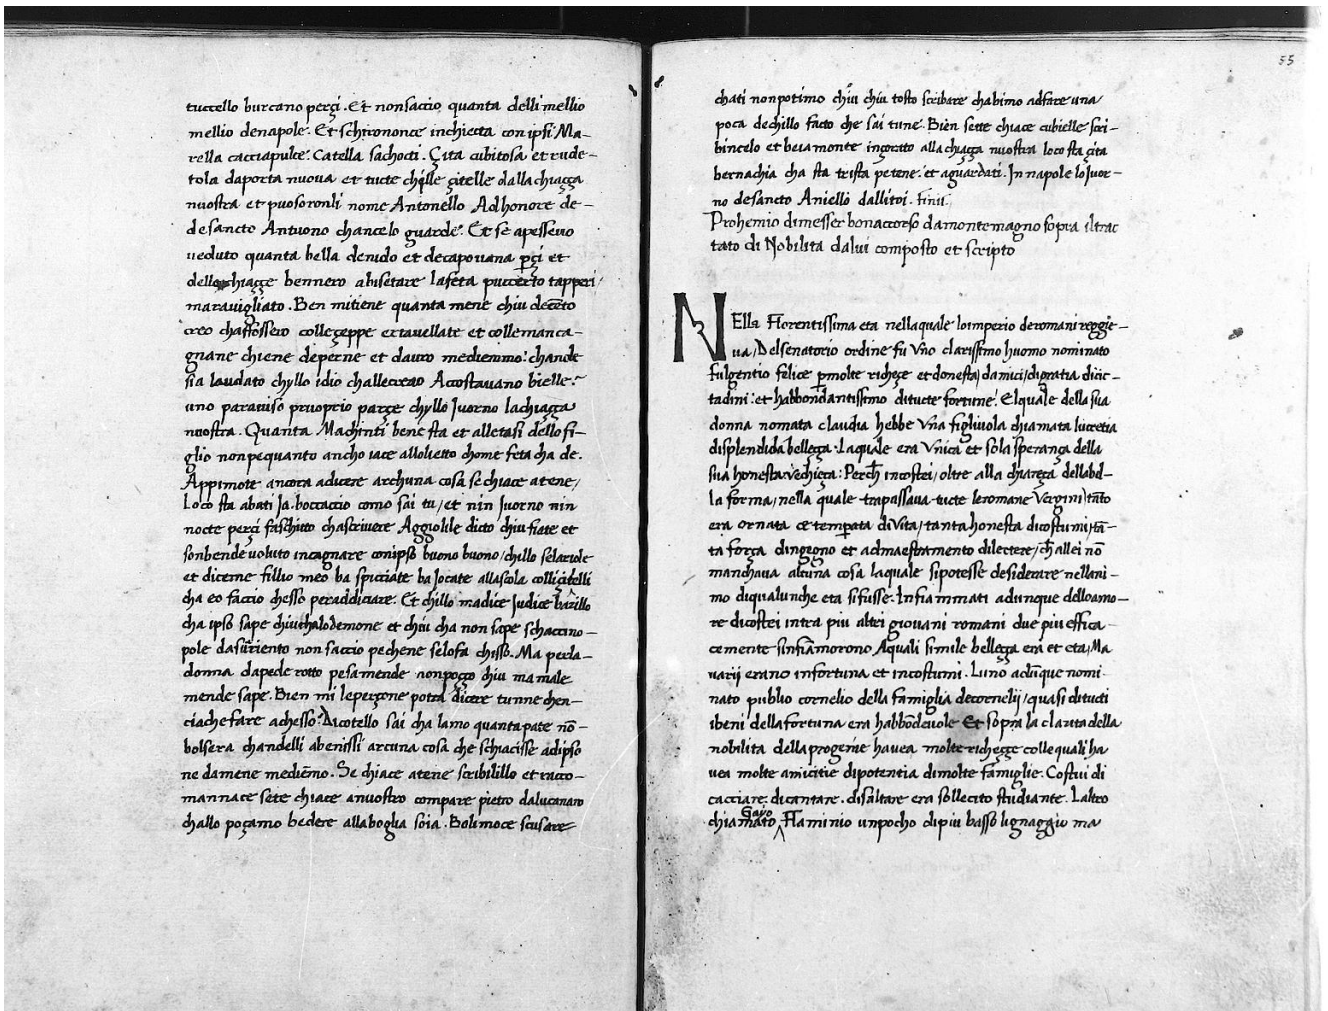 tuccello burcano perçi. Et non saccio quanta delli mellio
mellio denapole. Et schtrononce inchietta con ipsi. Ma-
rella cacciapulce. Catella sachocti. Çita cubitosa et rude-
tola daporta nuova et tucte chille çitelle dallachiaçça
nuostra et puosoronli nome Antonello Adhonore de-
de sancto Antuono chancelo guarde. Et se apessevo
veduto quanta bella denido et decapovana perçi et
delle chiaççe bennero abisetare lafeta puccerto tapperi
maravigliato. Ben mitiene quanta mene chiu decēto
creo chaffossero colleçeppe ertavellate et collemanca-
gnane chiene deperne et dauro mediemmo: chande
sia laudato chyllo idio challecreao Accostavano bielle.
uno paraviso pruoprio parçe chyllo Juorno lachiaçça
nuostra. Quanta Machinti bene sta et alletasi dello fi-
glio non pequanto ancho iace allolietto chome feta cha de.
Appimote ancora adicere archuna cosa se chiace atene/
Loco sta abati Ja. boccaccio como sai tu/et nin Juorno nin
nocte perçi faschitto chascrivere Aggiolile dicto chiu fiate et
sonbende voluto incagnare conipso buono buono/chillo selaride
et diceme fillio meo ba spicciate ba Jocate allascola colliçitelli
cha eo faccio chesso peraddiciare. Et chillo madice Judice barillo
cha ipso sape chiu chalodemone et chiu cha non sape schaccino-
pole dasurriento non saccio pechene selofa chisso. Ma perla-
donna dapede rotto pesamende non poçço chiu ma male
mende sape. Bien mi leperçone potra dicere tunne chen-
ciachefare achesso? Dicotello sai cha lamo quanta pate nō-
bolsera chandelli abenissi arcuna cosa che schiacisse adipso
ne damene mediēmo. Se chiace atene scribilillo et racco-
mannace sete chiace anuostro compare pietro dalucanaro
challo poçamo bedere allaboglia soia. Bolimoce scusare
55
chati non potimo chiu chiu tosto scribere chabimo adfare una
poca dechillo facto che sai tune. Bien sette chiace cubielle scri-
bincelo et beiamonte inçorato alla chiaçça nuostra loco sta çita
bernachia cha sta trista petene. et aguardati. In napole lo Juor-
no de sancto Aniello dallitoi. finit.
Prohemio dimesser bonaccorso damontemagno sopra iltrac
tato di Nobilita dalui composto et scripto
NElla Florentissima eta nellaquale loimperio deromani reggie-
ua/Delsenatorio ordine fu Vno clarissimo huomo nominato
fulgentio felice p̲molte richeçe et donesta/damici/digratia dicic-
tadini: et habbondantissimo ditucte fortune. Elquale della sua
donna nomata claudia hebbe Vna figliuola chiamata lucretia
displendida belleçça. Laquale era Vnica et sola sperança della
sua honesta vechieça: Perch̄ in costei/oltre alla chiareça dellabel-
la forma/nella quale trapassava tucte leromane Vergini tāto
era ornata et temp̲ata di Vita/tanta honesta dicostumi/tā-
ta força dingegno et admaestramento dilectere/ch̄ allei nō
manchaua alcuna cosa laquale sipotesse desiderare nellani-
mo diqualunche eta sifusse. Infiammati adunque delloamo-
re dicostei intra piu altri giovani romani due piu effica-
cemente sinfiāmorono Aquali simile belleçça era et eta/Ma
uarij erano infortuna et incostumi. Luno adūque nomi-
nato publio cornelio della famiglia decornelij/quasi ditucti
ibeni dellafortuna era habbōdeuole Et sopra la clarita della
nobilita dellaprogenie hauea molte richeççe colle quali ha
uea molte amicitie dipotentia dimolte famiglie. Costui di
cacciare. dicantare. disaltare era sollecito studiante. Laltro
chiamato Gayo Flaminio unpocho dipiu basso lignaggio ma